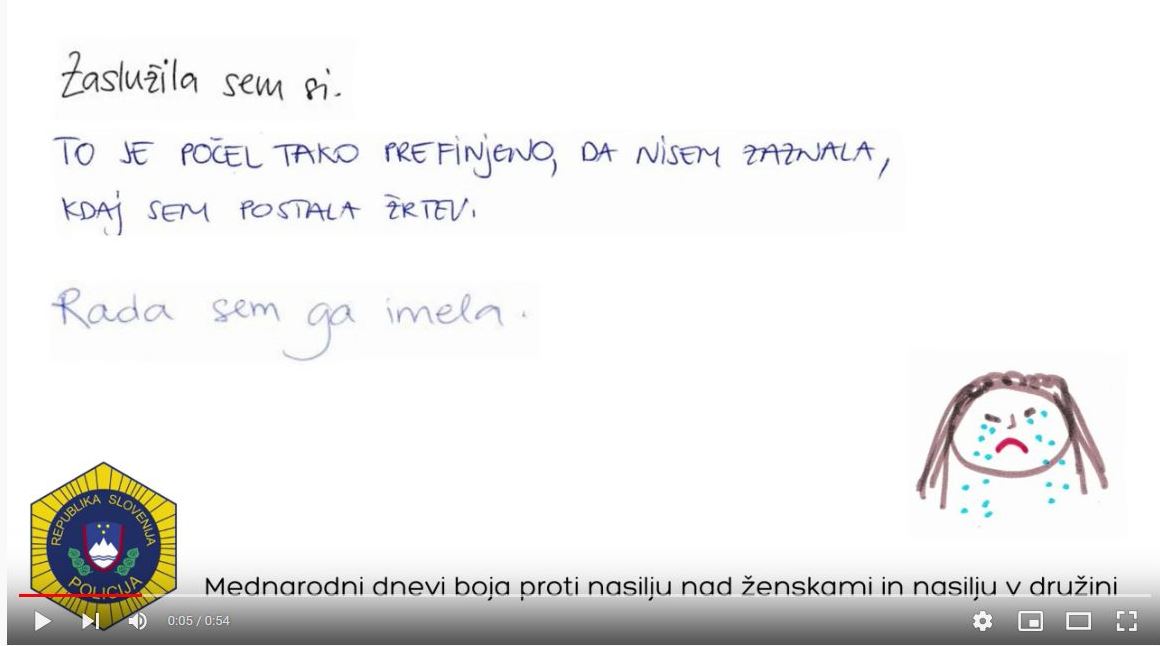 Zaslužila sem si.
TO JE POČEL TAKO PREFINJENO, DA NISEM ZAZNALA,
KDAJ SEM POSTALA ŽRTEV.
Rada sem ga imela.
REPUBLIKA SLOVENIJA
POLICIJA
Mednarodni dnevi boja proti nasilju nad ženskami in nasilju v družini
0:05 / 0:54